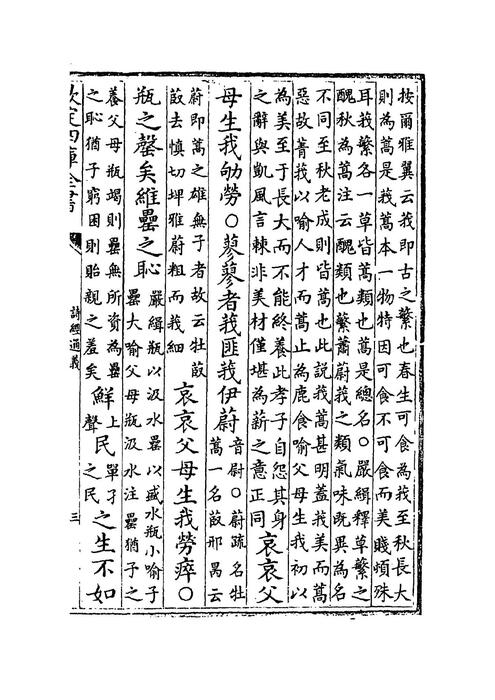 按爾雅翼云莪即古之蘩也春生可食為莪至秋長大
則為蒿是莪蒿本一物特因可食不可食而美賤頓殊
耳莪蘩各一草皆蒿類也蒿是總名○嚴緝釋草蘩之
醜秋為蒿注云醜類也蘩蕭蔚莪之類氣味既異為名
不同至秋老成則皆蒿也此説莪蒿甚明蓋莪美而蒿
惡故菁莪以喻人才而蒿止為鹿食喻父母生我初以
為美至于長大而不能終養此孝子自怨其身
之辭與凱風言棘非美材僅堪為薪之意正同
哀哀父
母生我劬勞○蓼蓼者莪匪我伊蔚
音尉○蔚疏名牡
蒿一名菣邢昺云
蔚即蒿之雄無子者故云牡菣
菣去慎切埤雅蔚粗而莪細
哀哀父母生我勞瘁○
瓶之罄矣維罍之恥
嚴緝瓶以汲水罍以盛水瓶小喻子
罍大喻父母瓶汲水注罍猶子之
養父母瓶竭則罍無所資為罍
之恥猶子窮困則貽親之羞矣
鮮
上
聲
民
單孑
之民
之生不如
欽定四庫全書
詩經通義
三